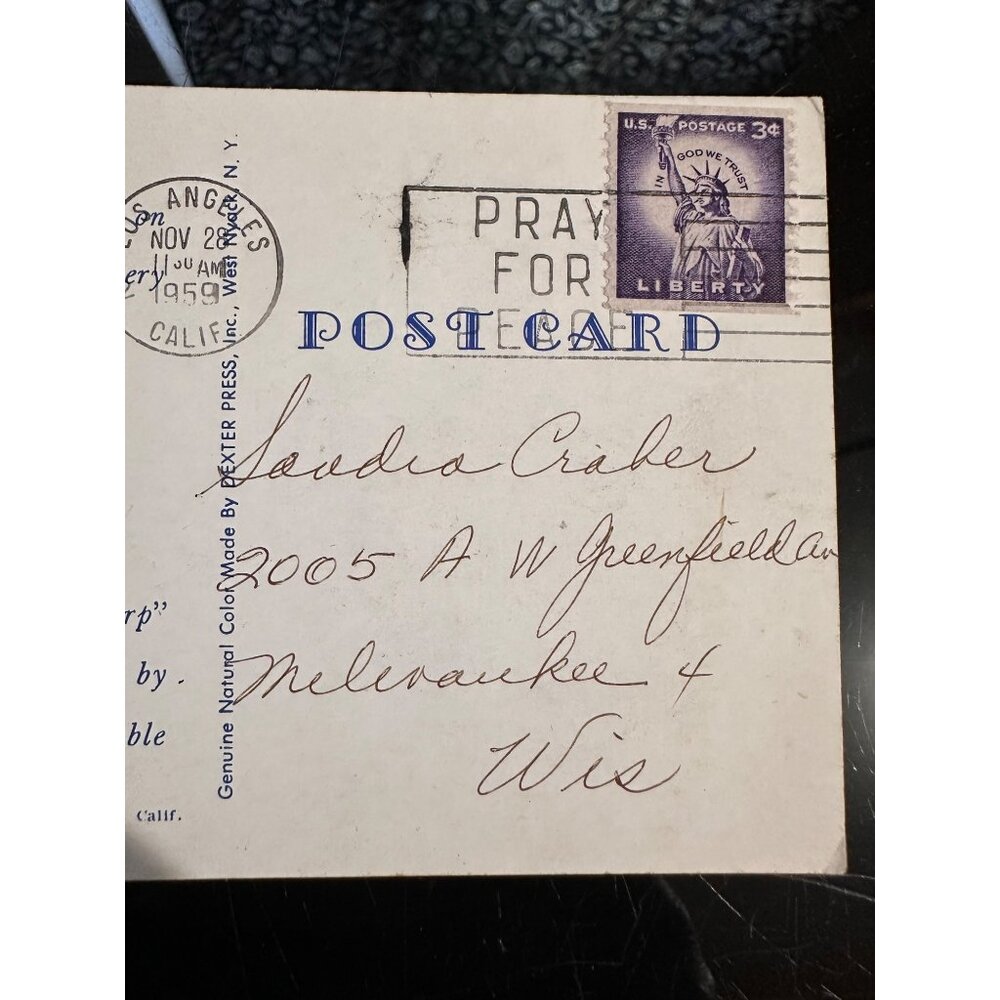 LOS ANGELES
NOV 28
11 00 AM
1959
CALIF.
PRAY
FOR
PEACE
U.S. POSTAGE 3¢
IN GOD WE TRUST
LIBERTY
POST CARD
on
ery
rp"
by.
ble
Calif.
Genuine Natural Color Made By DEXTER PRESS, Inc., West Nyack, N. Y.
Sandra Craber
2005 A W Greenfield Av
Milewaukee 4
Wis